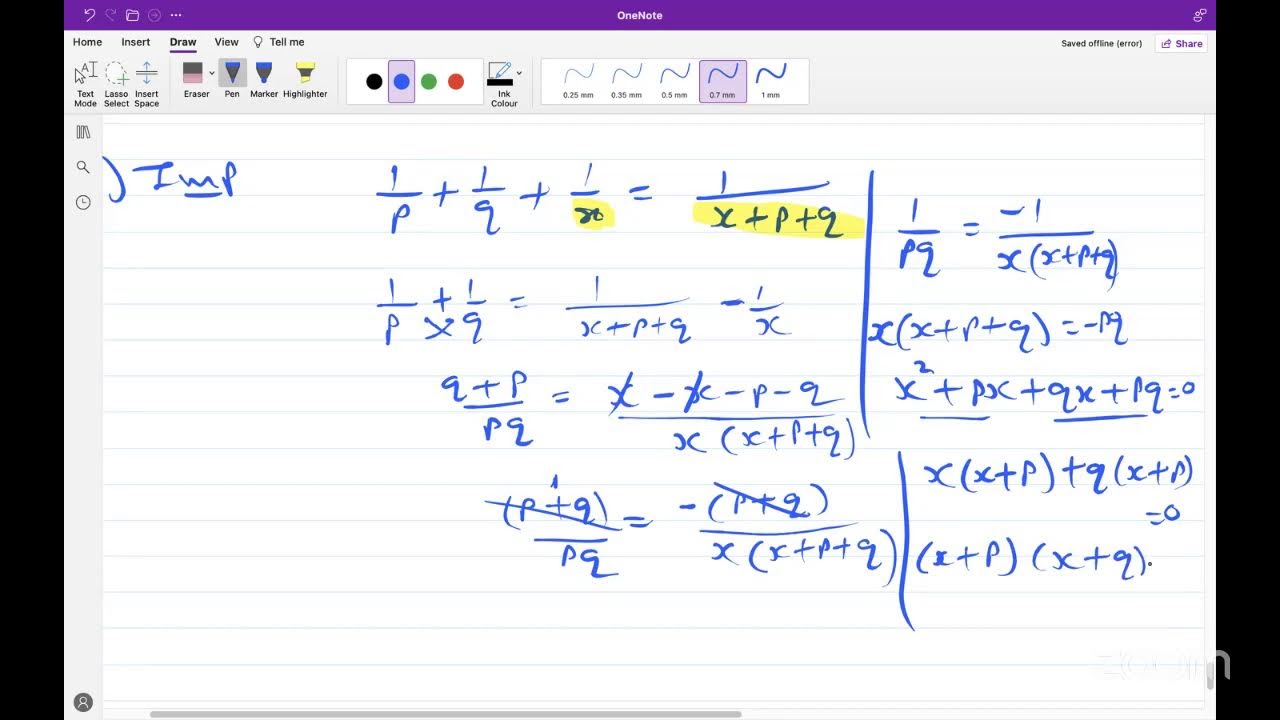 OneNote
Home Insert Draw View Tell me
Saved offline (error) Share
Text Mode Lasso Select Insert Space Eraser Pen Marker Highlighter Ink Colour 0.25 mm 0.35 mm 0.5 mm 0.7 mm 1 mm
) Imp
1/p + 1/q + 1/x = 1/(x+p+q)
1/p + 1/q = 1/(x+p+q) - 1/x
(q+p)/pq = (x - x - p - q)/(x(x+p+q))
(p+q)/pq = -(p+q)/(x(x+p+q))
1
1/pq = -1/(x(x+p+q))
x(x+p+q) = -pq
x² + px + qx + pq = 0
x(x+p) + q(x+p)
= 0
(x+p) (x+q)
zoom